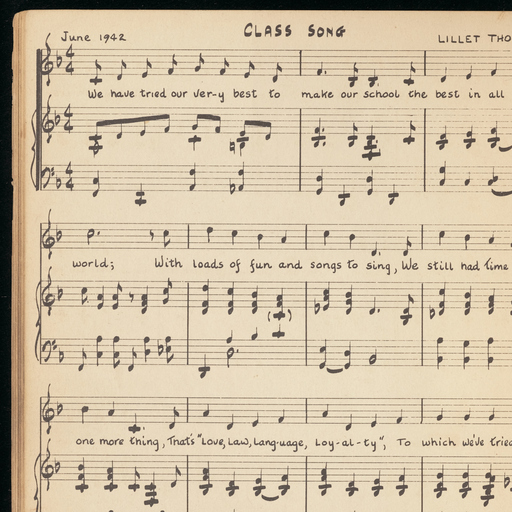 June 1942
CLASS SONG
LILLET THO
We have tried our ver-y best to make our school the best in all
world; With loads of fun and songs to sing, We still had time
one more thing, That's "Love, Law, Lang-uage, Loy-al-ty"; To which we've tried